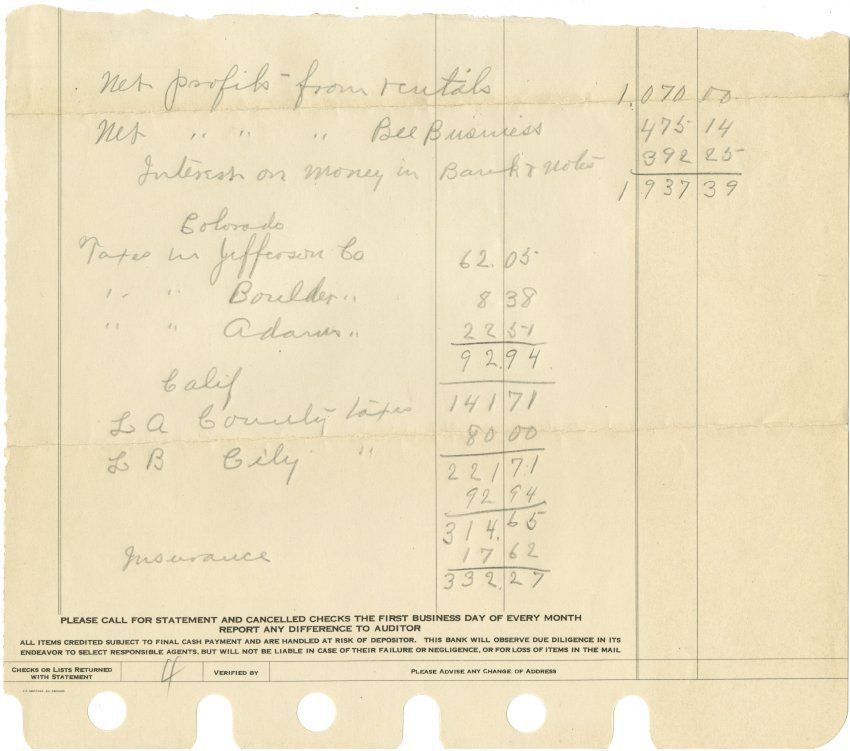 Net profits from rentals 1,070 00
Net " " " Bee Business 475 14
Interest on money in Bank & Notes 392 25
1 937 39
Colorado
Taxes in Jefferson Co 62.05
" " Boulder " 8 38
" " Adams " 22 51
92.94
Calif
L A County taxes 141 71
L B City " 80 00
221 71
92 94
314.65
Insurance 17 62
332.27
PLEASE CALL FOR STATEMENT AND CANCELLED CHECKS THE FIRST BUSINESS DAY OF EVERY MONTH
REPORT ANY DIFFERENCE TO AUDITOR
ALL ITEMS CREDITED SUBJECT TO FINAL CASH PAYMENT AND ARE HANDLED AT RISK OF DEPOSITOR. THIS BANK WILL OBSERVE DUE DILIGENCE IN ITS
ENDEAVOR TO SELECT RESPONSIBLE AGENTS, BUT WILL NOT BE LIABLE IN CASE OF THEIR FAILURE OR NEGLIGENCE, OR FOR LOSS OF ITEMS IN THE MAIL
CHECKS OR LISTS RETURNED WITH STATEMENT 4 VERIFIED BY PLEASE ADVISE ANY CHANGE OF ADDRESS